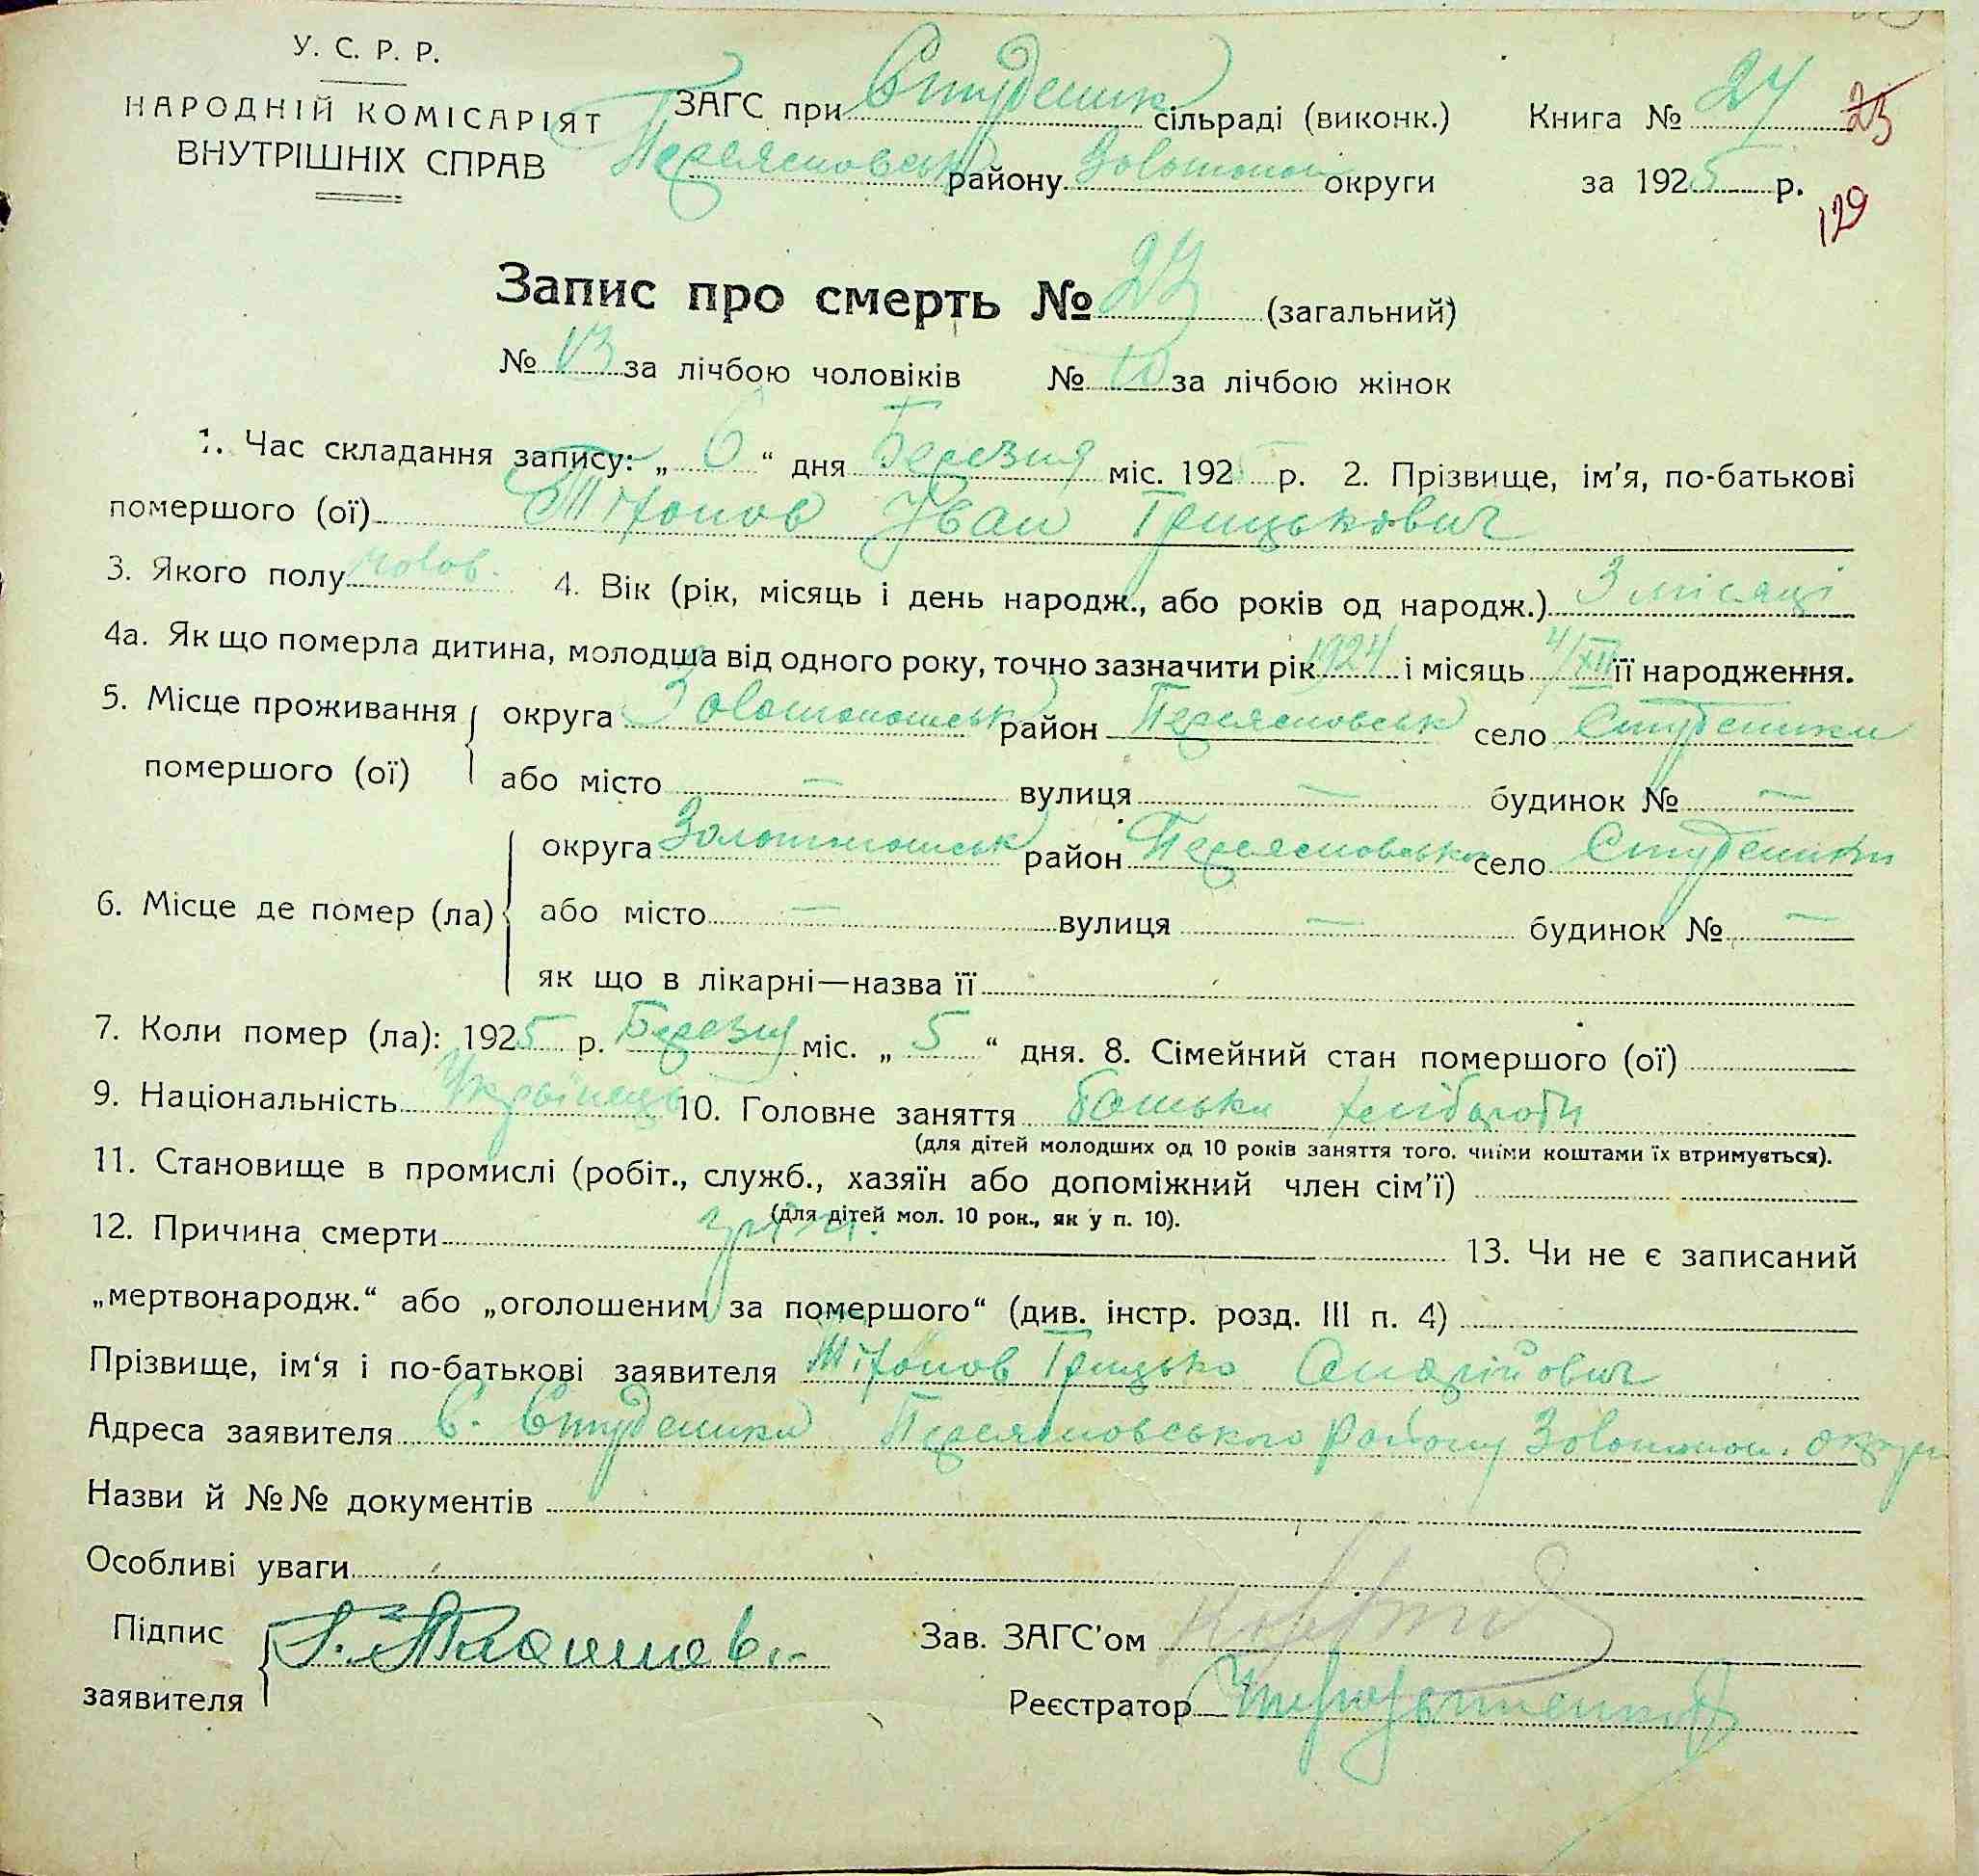 У. С. Р. Р.
НАРОДНІЙ КОМІСАРІЯТ
ВНУТРІШНІХ СПРАВ
ЗАГС при Студеник сільраді (виконк.)
Переяславськ району Золотонош округи
Книга № 24 23
за 1925 р.
129
Запис про смерть № 23 (загальний)
№ 13 за лічбою чоловіків № 10 за лічбою жінок
1. Час складання запису: „ 6 “ дня Березня міс. 192 р. 2. Прізвище, ім’я, по-батькові
помершого (ої) Іван Грицькович
3. Якого полу чолов. 4. Вік (рік, місяць і день народж., або років од народж.) 3 місяці
4а. Як що померла дитина, молодша від одного року, точно зазначити рік 1924 і місяць 4/XII її народження.
5. Місце проживання помершого (ої) округа Золотоношськ район Переясловськ село Студеники
або місто — вулиця — будинок № —
6. Місце де помер (ла) округа Золотоношськ район Переясловськ село Студеники
або місто — вулиця — будинок № —
як що в лікарні—назва її
7. Коли помер (ла): 1925 р. Березня міс. „ 5 “ дня. 8. Сімейний стан помершого (ої)
9. Національність Українець 10. Головне заняття Батьки хлібороби
(для дітей молодших од 10 років заняття того, чиїми коштами їх втримується).
11. Становище в промислі (робіт., служб., хазяїн або допоміжний член сім’ї)
(для дітей мол. 10 рок., як у п. 10).
12. Причина смерти 13. Чи не є записаний
„мертвонародж.“ або „оголошеним за помершого“ (див. інстр. розд. III п. 4)
Прізвище, ім‘я і по-батькові заявителя Грицько Андрійович
Адреса заявителя с. Студеники Переясловського району Золотонош. округи
Назви й №№ документів
Особливі уваги
Підпис заявителя
Зав. ЗАГС’ом
Реєстратор